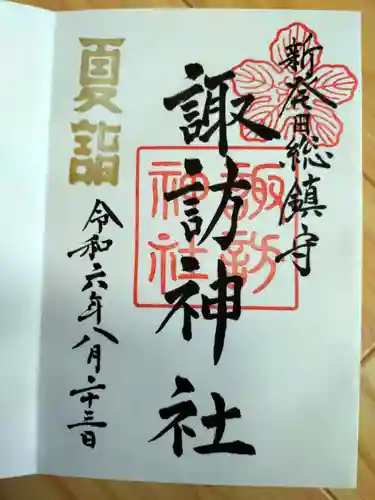 新発田総鎮守
諏訪神社
諏訪神社
夏詣
令和六年八月二十三日